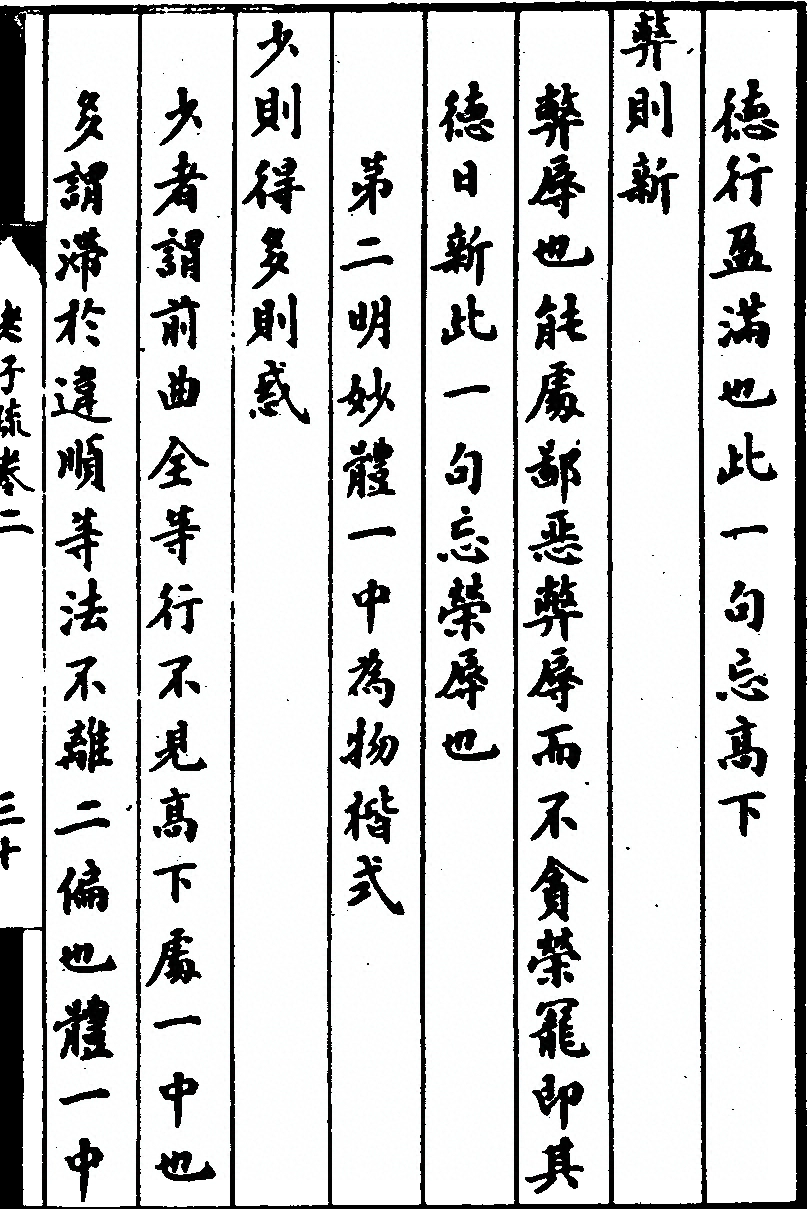 德行盈滿也此一句忘高下
弊則新
弊辱也能處鄙惡弊辱而不貪榮寵即其
德日新此一句忘榮辱也
第二明妙體一中為物楷式
少則得多則惑
少者謂前曲全等行不見高下處一中也
多謂滯於違順等法不離二偏也體一中
老子疏卷二
三十